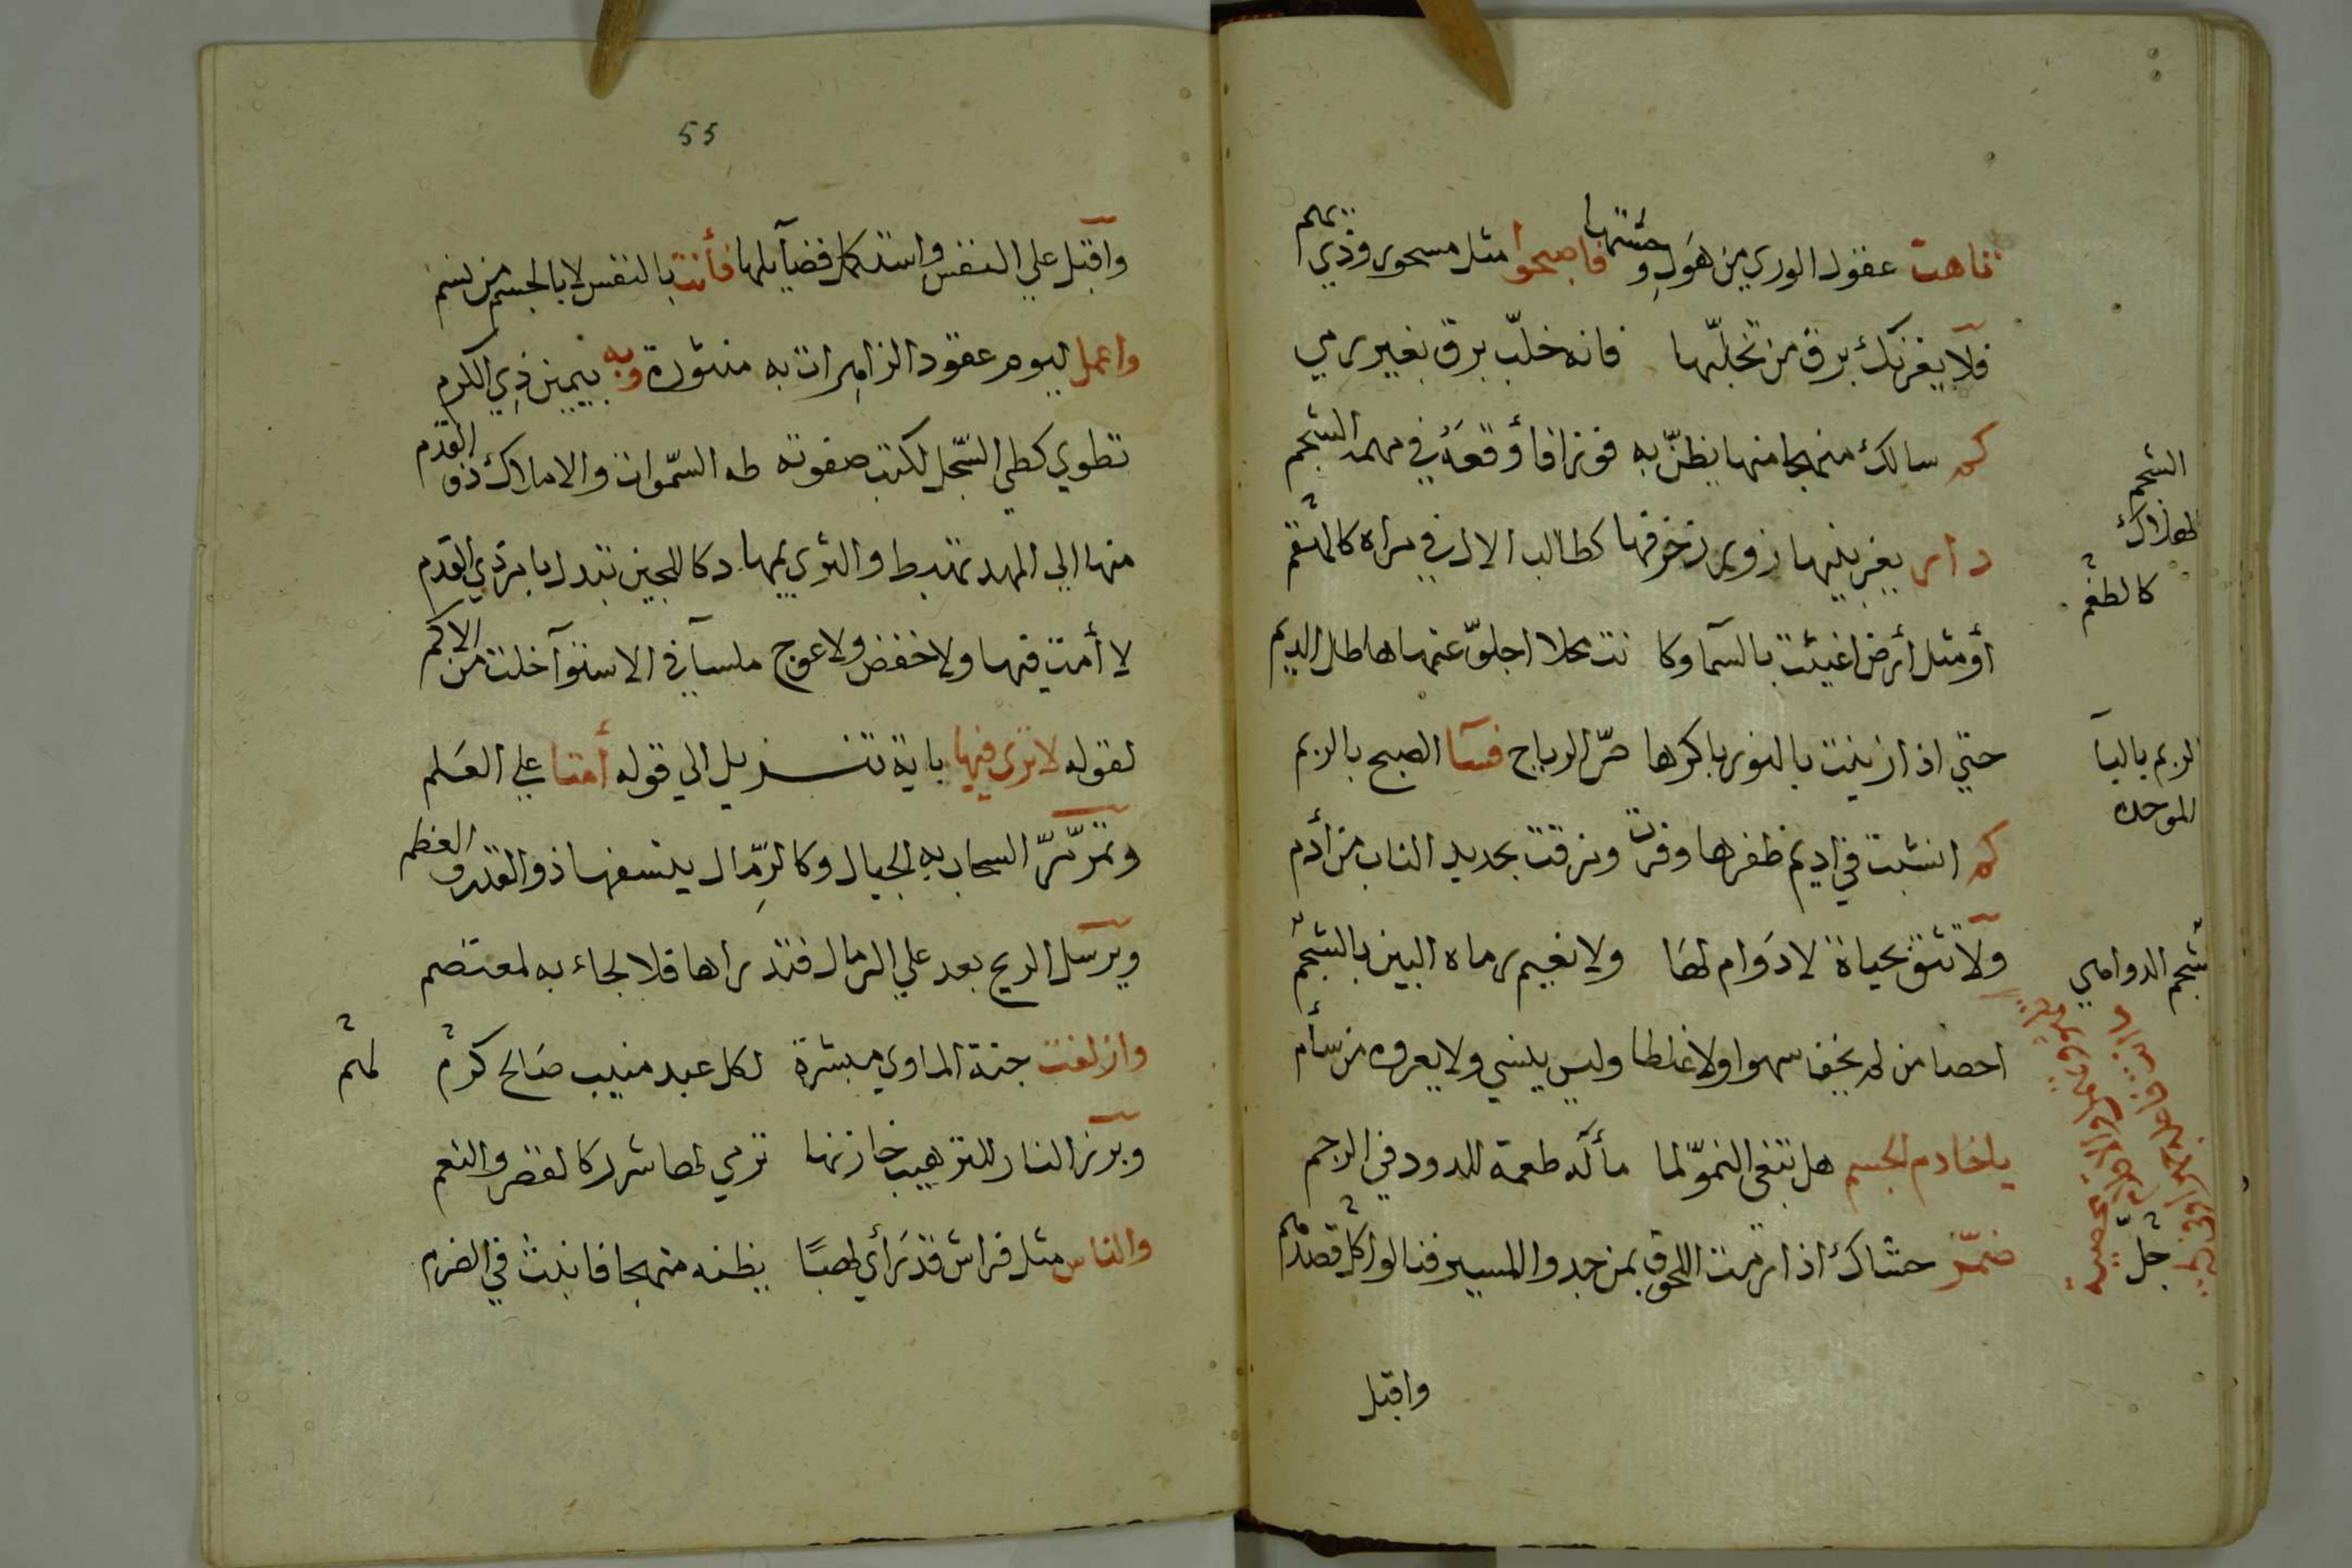 تاهت عقول الوري من هول وحشتها فاصبحوا مثل مسحور وذي
فلا يغرنك برق من تخلّبها فانه خلّب برق بغير رمي
كم سالك منهجا منها يظنّ به فوزا فأوقعه في مهمه الشجم
دار يغر بنيها زور زخرفها كطالب الال في
أو مثل أرض اغيثت بالسمآ وكا نت محلا عنها هاطل الديم
حتي اذا ازينت بالنور باكرها صرّ الرياح فسآ الصبح بالربم
كم انشبت في اديم ظفرها وفرت ومزقت بحديد الناب من أدم
ولا تثق بحياة لا دوام لها ولا نعيم رماه البين بالشجم
احصا من لم يخف سهوا ولا غلطا وليس ينسي ولا يعروه من سأم
يا خادم الجسم هل تبغي النموّ لما مآله طعمة للدود في الرجم
حشاك اذا رمت اللحوق بمن جدوا المسير فنالوا كل قصدهم
الشجم
الهلاك
كالطغم
الربم بالبا
الموحده
شجم الدواهي
جلّ
واقبل
55
واقبل علي النفس واستكمل فضآيلها فأنت بالنفس لا بالجسم من نسم
واعمل ليوم عقود الزاهرات به منثورة وبه بيمين ذي الكرم
تطوي كطي السّجل لكتب صفوته طه السّموات والاملاك ذو القدم
منها الي المهد تهبط والثري بها دكا للجين تبدل بامر ذي القدم
لا أمت فيها ولا خفض ولا عوج ملسآ في الاستوآ خلت من الاكم
لقوله لا تري فيها باية تنزيل الي قوله أمتا علي العلم
وتمر مرّ السحاب به الجبال وكالرّمال ينسفها ذو القدر والعظم
ويرسل الريح بعد علي الرمال فتذراها فلا لجاء به لمعتصم
وازلفت جنة الماوي مبشرة لكل عبد منيب صالح كرم
لهم
وبرز النار للترهيب خازنها ترمي لها شرر كالقصر والنعم
والناس مثل فراش قد رأي لهبًا يظنه منهجا فانبث في الضرم